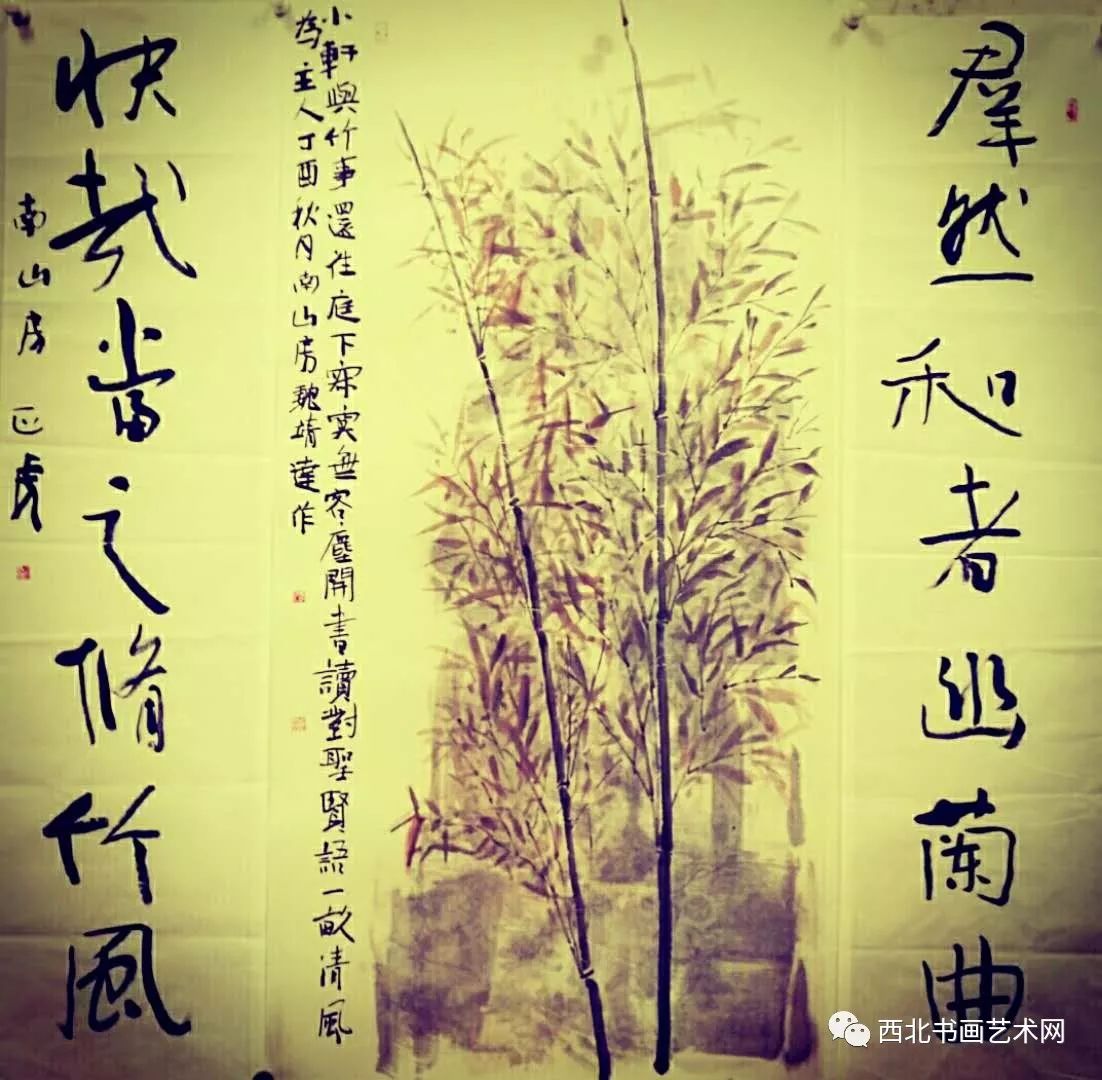 羣然和者幽蘭曲
小軒與竹事還往庭下寂寞無客塵開書讀對聖賢語一畝清風
為主人丁酉秋月南山房魏靖達作
快哉當之脩竹風
南山房 正虎
西北书画艺术网